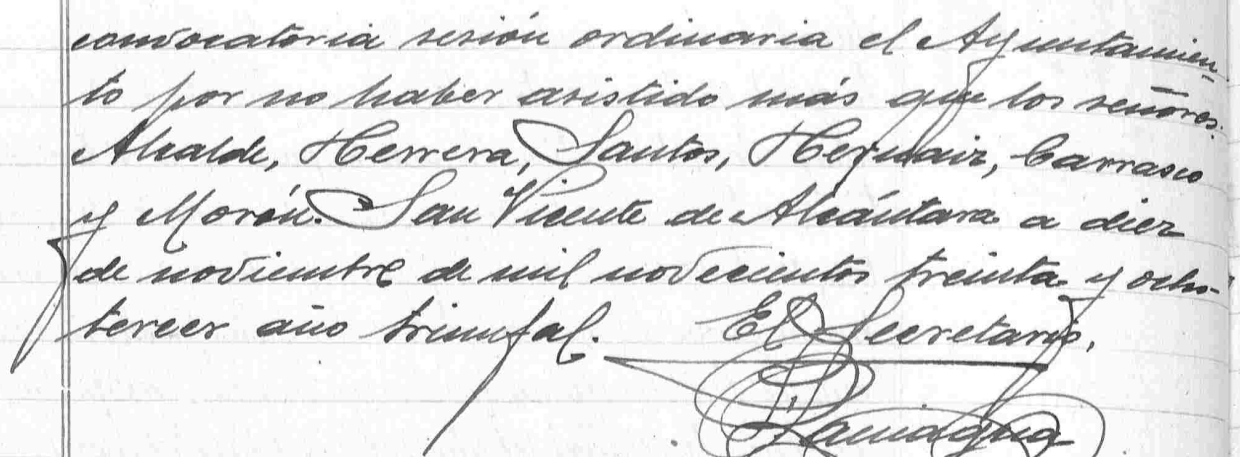 convocatoria sesión ordinaria el Ayuntamien-
to por no haber asistido más que los señores
Alcalde, Herrera, Santos, Hernaiz, Carrasco
y Morón. San Vicente de Alcántara a diez
de noviembre de mil novecientos treinta y ocho-
tercer año triunfal. El Secretario,
Paniagua